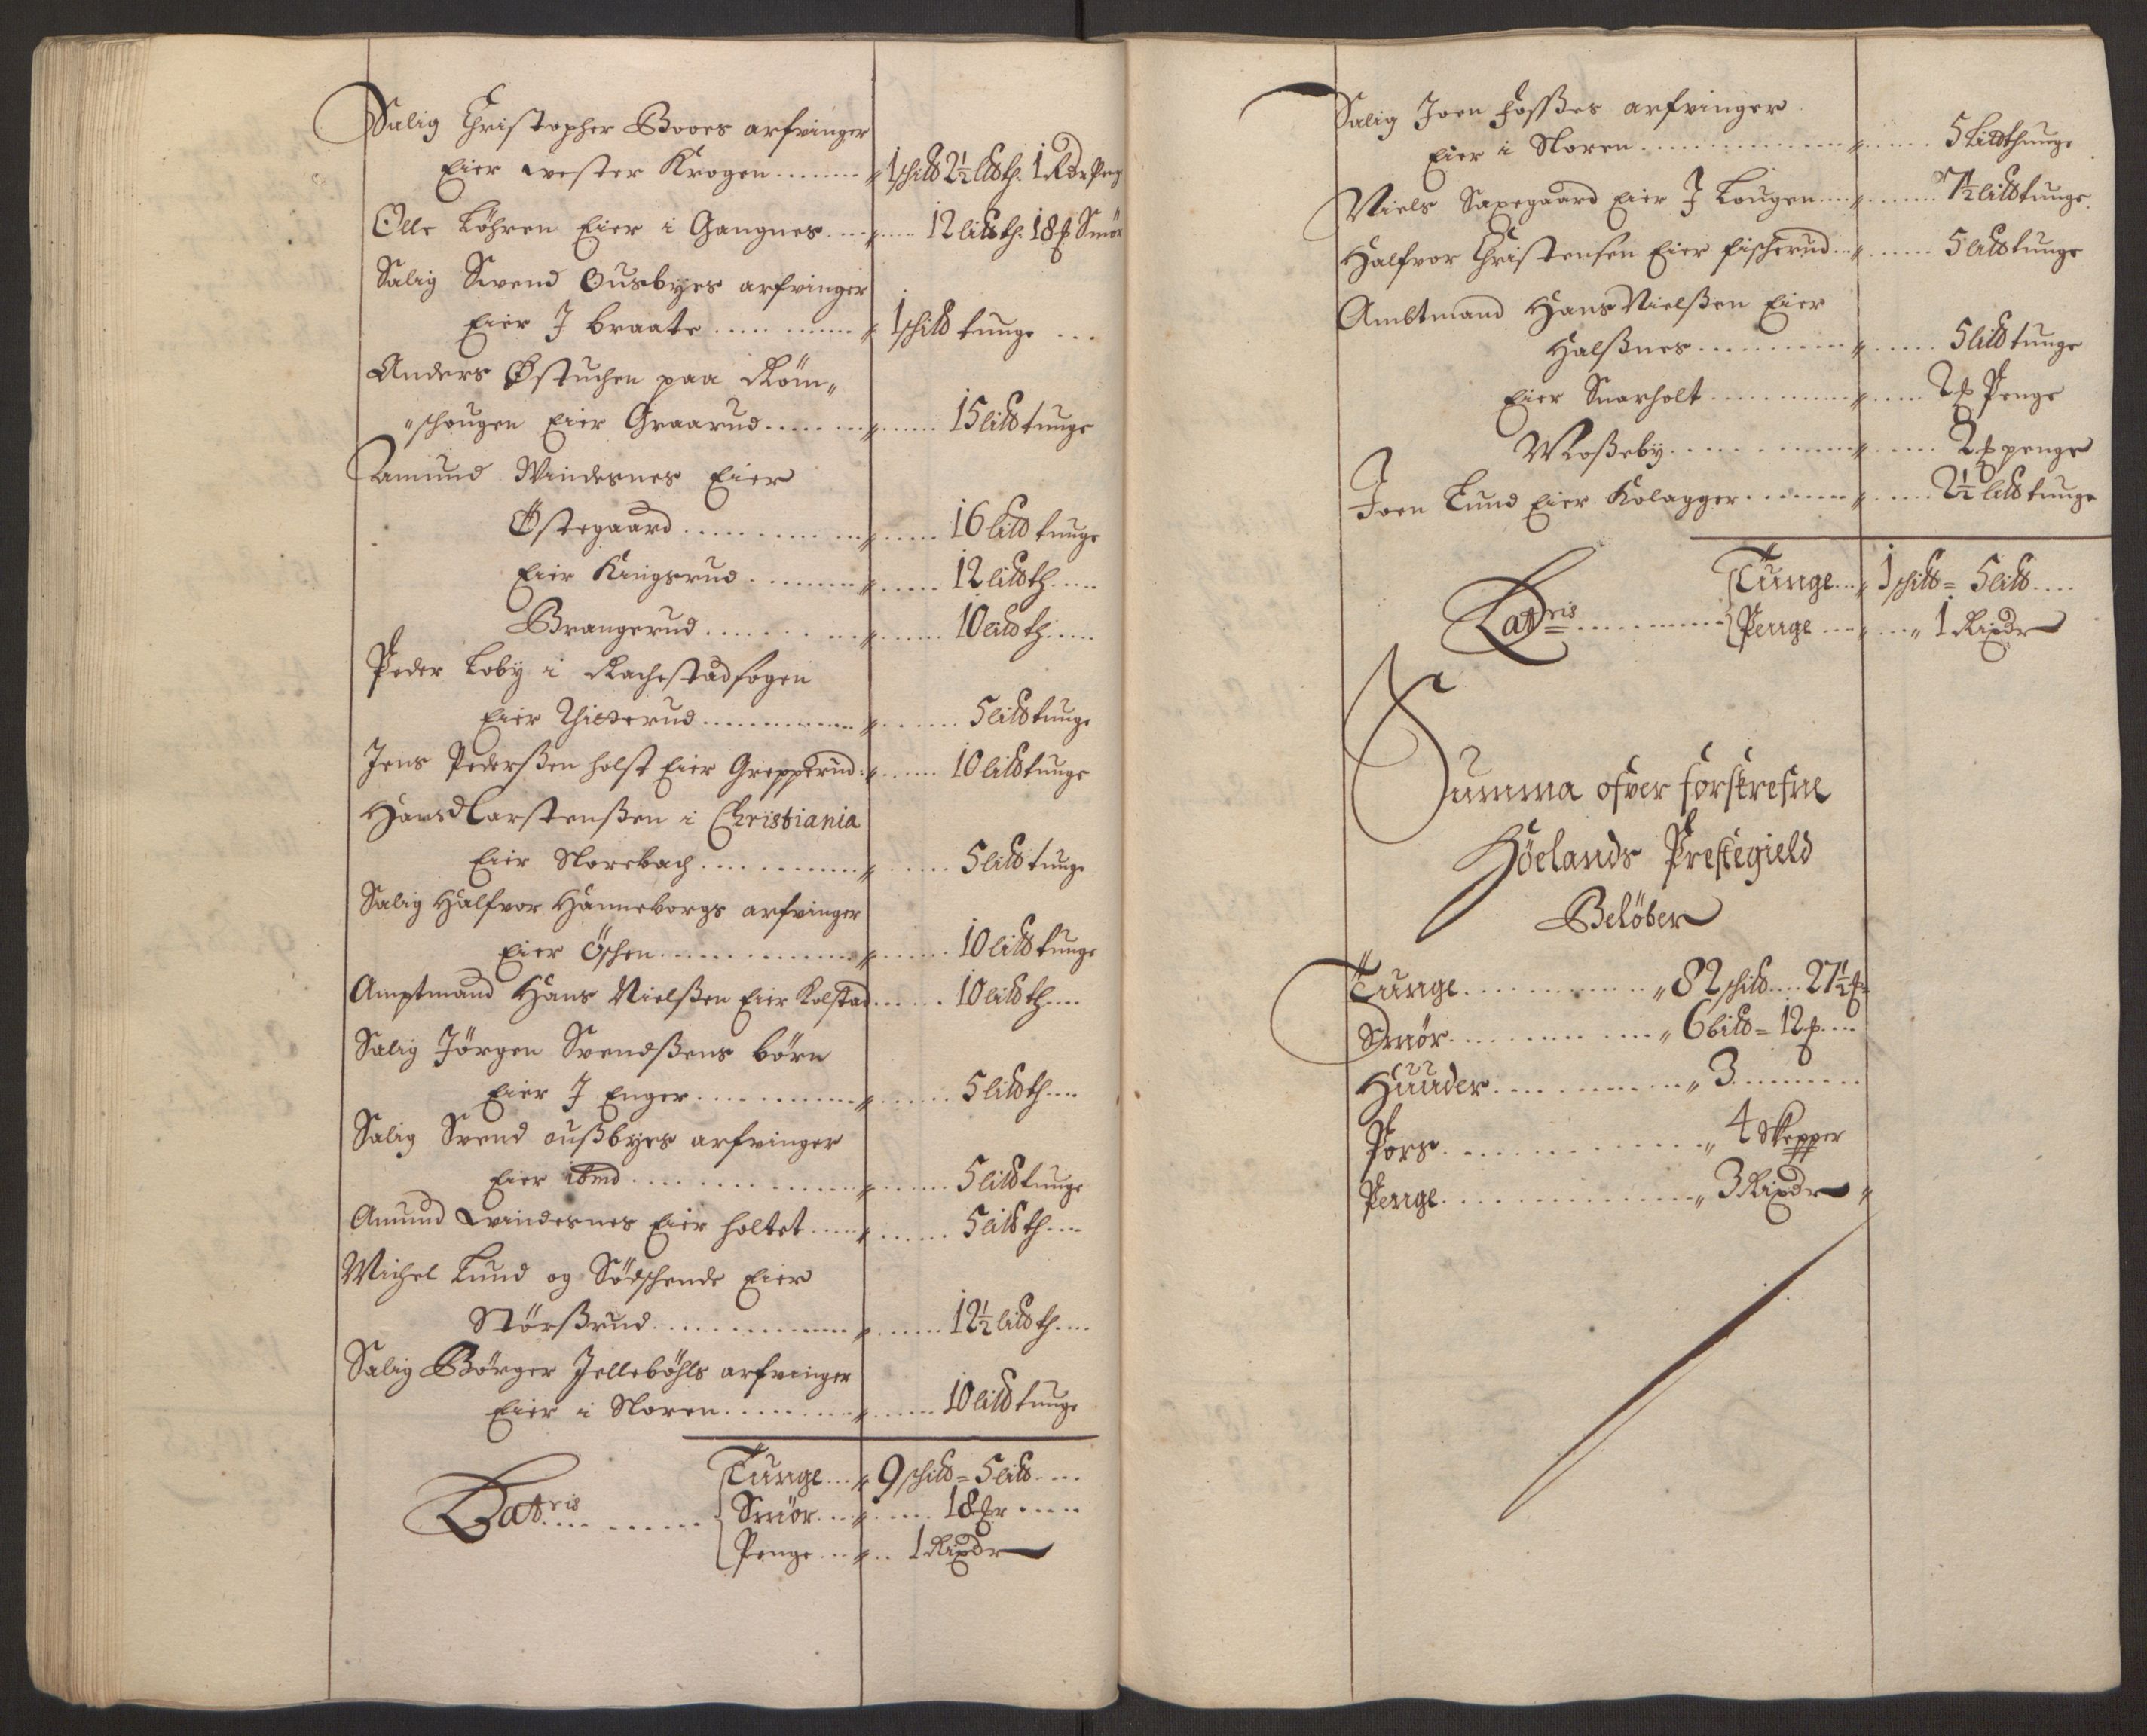 Salig Christopher Booes arfvinger
Eier wester Krogen ........ „ 1 schild 2½ lld th. 1 Rdr Peng
Olle Löhren Eier i Gangnes .... „ .... 12 lild th. 18 ℔ Smör
Salig Swend Ousbyes arfvinger
Eier J braate ........ „ 1 schild tunge ...
Anders Østuchen paa Röm„
„schougen Eier Graarud ...... „ ...... 15 lild tunge
Amund Windesnes Eier
Östegaard ........ „ ...... 16 lild tunge
Eier Kingsrud ........ „ ...... 12 lild th ....
Brangerud ........ „ ...... 10 lild th .....
Peder Loby i Rachestad sogen
Eier Thitterud ........ „ ...... 5 lild tunge
Jens Pederßen holst Eier Grepperud .. „ ...... 10 lild tunge
Hans Carstenßen i Christiania
Eier Norebach ........ „ ...... 5 lild tunge
Salig Halfvor Hanneborgs arfvinger
Eier Öschen ........ „ ...... 10 lild tunge
Amptmand Hans Nielßen Eier Kolstad ...... 10 lild th ....
Salig Jörgen Svendßens börn
Eier J Enger ........ „ ...... 5 lild th ....
Salig Svend oußbyes arfvinger
Eier ibmd ........ „ ...... 5 lild tunge
Amund windesnes Eier holtet ..... „ ...... 5 lild th ....
Michel Lund og Södschende Eier
Störßrud ........ „ ...... 12½ lild th ....
Salig Börger Jelleböhls arfvinger
Eier i Noren ........ „ ...... 10 lild tunge
Tunge ... „ 9 schild = 5 lild ....
Latris ........ Smör ... „ ..... 18 ℔r .....
Penge ... „ .. 1 Rixdr
Salig Joen Foßßes arfvinger
Eier i Noren ........ „ ...... 5 Lild thunge
Niels Saxegaard Eier J Lougen .... „ ...... 7½ lild tunge
Halfvor Christensen Eier fischerud ... „ ...... 5 lild tunge
Ambtmand Hans Nielßen Eier
Halßnes ........ „ ...... 5 lild tunge
Eier Snarholt ........ „ ..... 2 ß Penge
Moßeby ........ „ ...... 2 ß penge
Joen Lund Eier Kolagger ........ „ ..... 2½ lild tunge
Tunge ... „ 1 schild = 5 lild ....
Latris ........ Penge .... „ .... „ 1 Rixdr
Summa ofver forskrefne
Höelands Prestegield
Belöber
Tunge ........ „ 82 schild .... 27½ ℔
Smör ........ „ 6 bild = 12 ℔ ....
Huuder ........ „ 3 ........
Pors ........ „ 4 Skepper
Penge ........ „ 3 Rixdr „